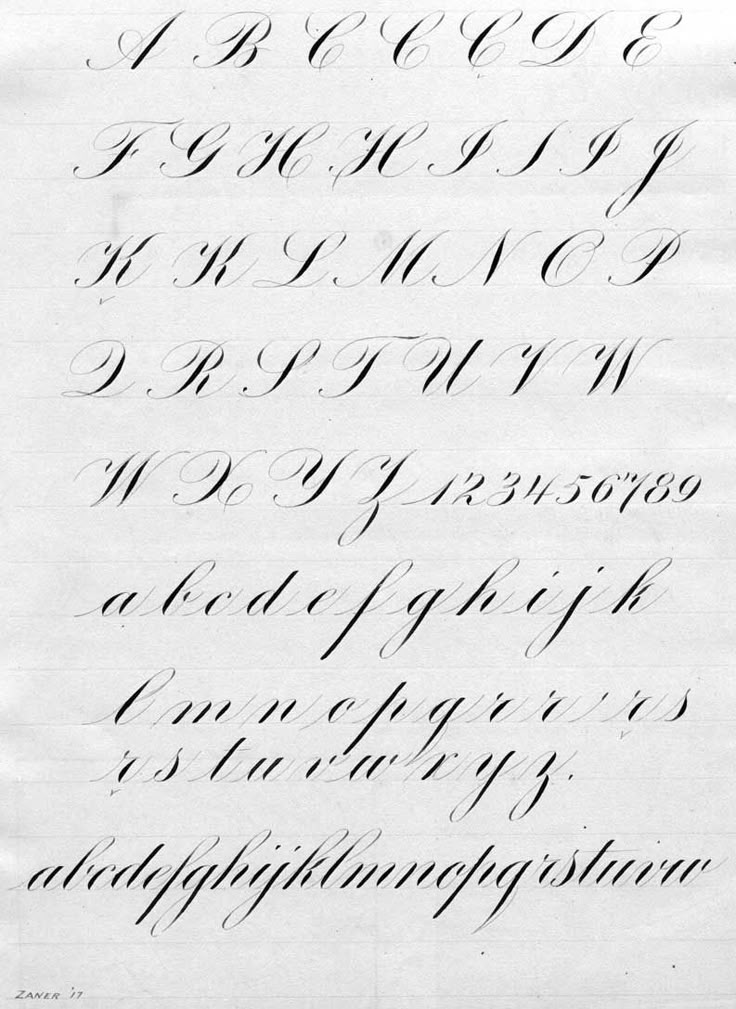 A B C C C D E
F G H H I I I J
K K L M N O P
Q R S T U V W
W X Y Z 1 2 3 4 5 6 7 8 9
a b c d e f g h i j k
l m n o p q r r r s
r s t u v w x y z.
abcdefghijklmnopqrstuvw
ZANER '17